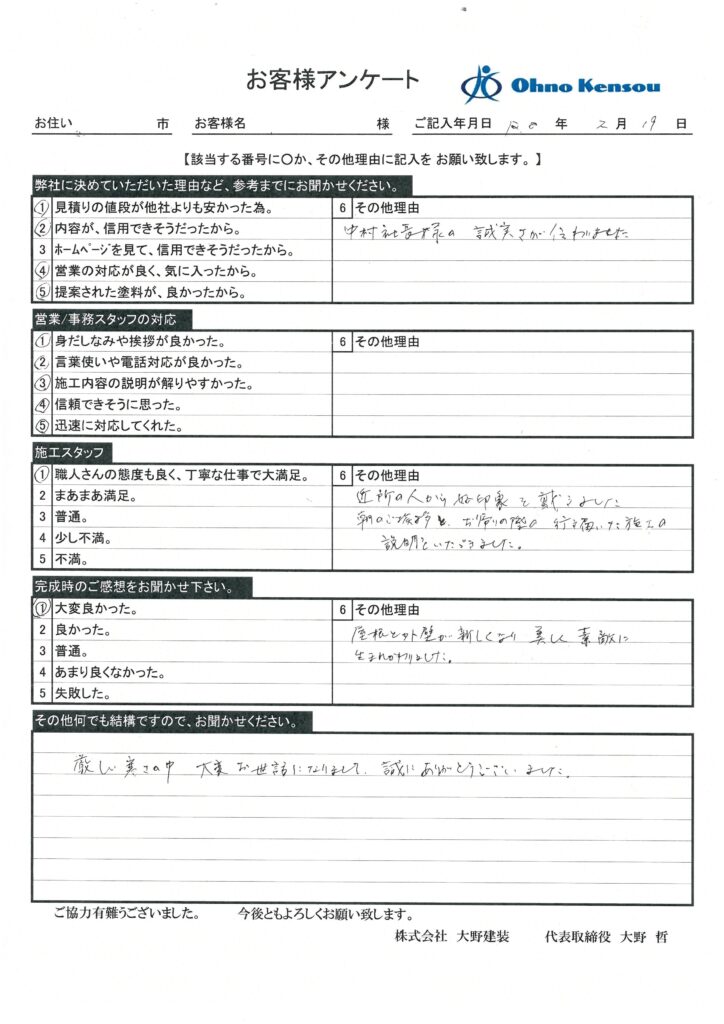 お客様アンケート
Ohno Kensou
お住い 市 お客様名 様 ご記入年月日 年 2月 19 日
【該当する番号に〇か、その他理由に記入を お願い致します。】
弊社に決めていただいた理由など、参考までにお聞かせください。
① 見積りの値段が他社よりも安かった為。
② 内容が、信用できそうだったから。
3 ホームページを見て、信用できそうだったから。
④ 営業の対応が良く、気に入ったから。
⑤ 提案された塗料が、良かったから。
6 その他理由
中村社長様の 誠実さが伝わりました
営業/事務スタッフの対応
① 身だしなみや挨拶が良かった。
② 言葉使いや電話対応が良かった。
③ 施工内容の説明が解りやすかった。
④ 信頼できそうに思った。
⑤ 迅速に対応してくれた。
6 その他理由
施工スタッフ
① 職人さんの態度も良く、丁寧な仕事で大満足。
2 まあまあ満足。
3 普通。
4 少し不満。
5 不満。
6 その他理由
近所の人から好印象を戴きました
朝のご挨拶と、お帰りの際の 行き届いた施工の
説明をいただきました。
完成時のご感想をお聞かせ下さい。
① 大変良かった。
2 良かった。
3 普通。
4 あまり良くなかった。
5 失敗した。
6 その他理由
屋根と外壁が新しくなり 美しく 素敵に
生まれかわりました。
その他何でも結構ですので、お聞かせください。
厳しい寒さの中 大変お世話になりまして、誠にありがとうございました。
ご協力有難うございました。 今後ともよろしくお願い致します。
株式会社 大野建装 代表取締役 大野 哲